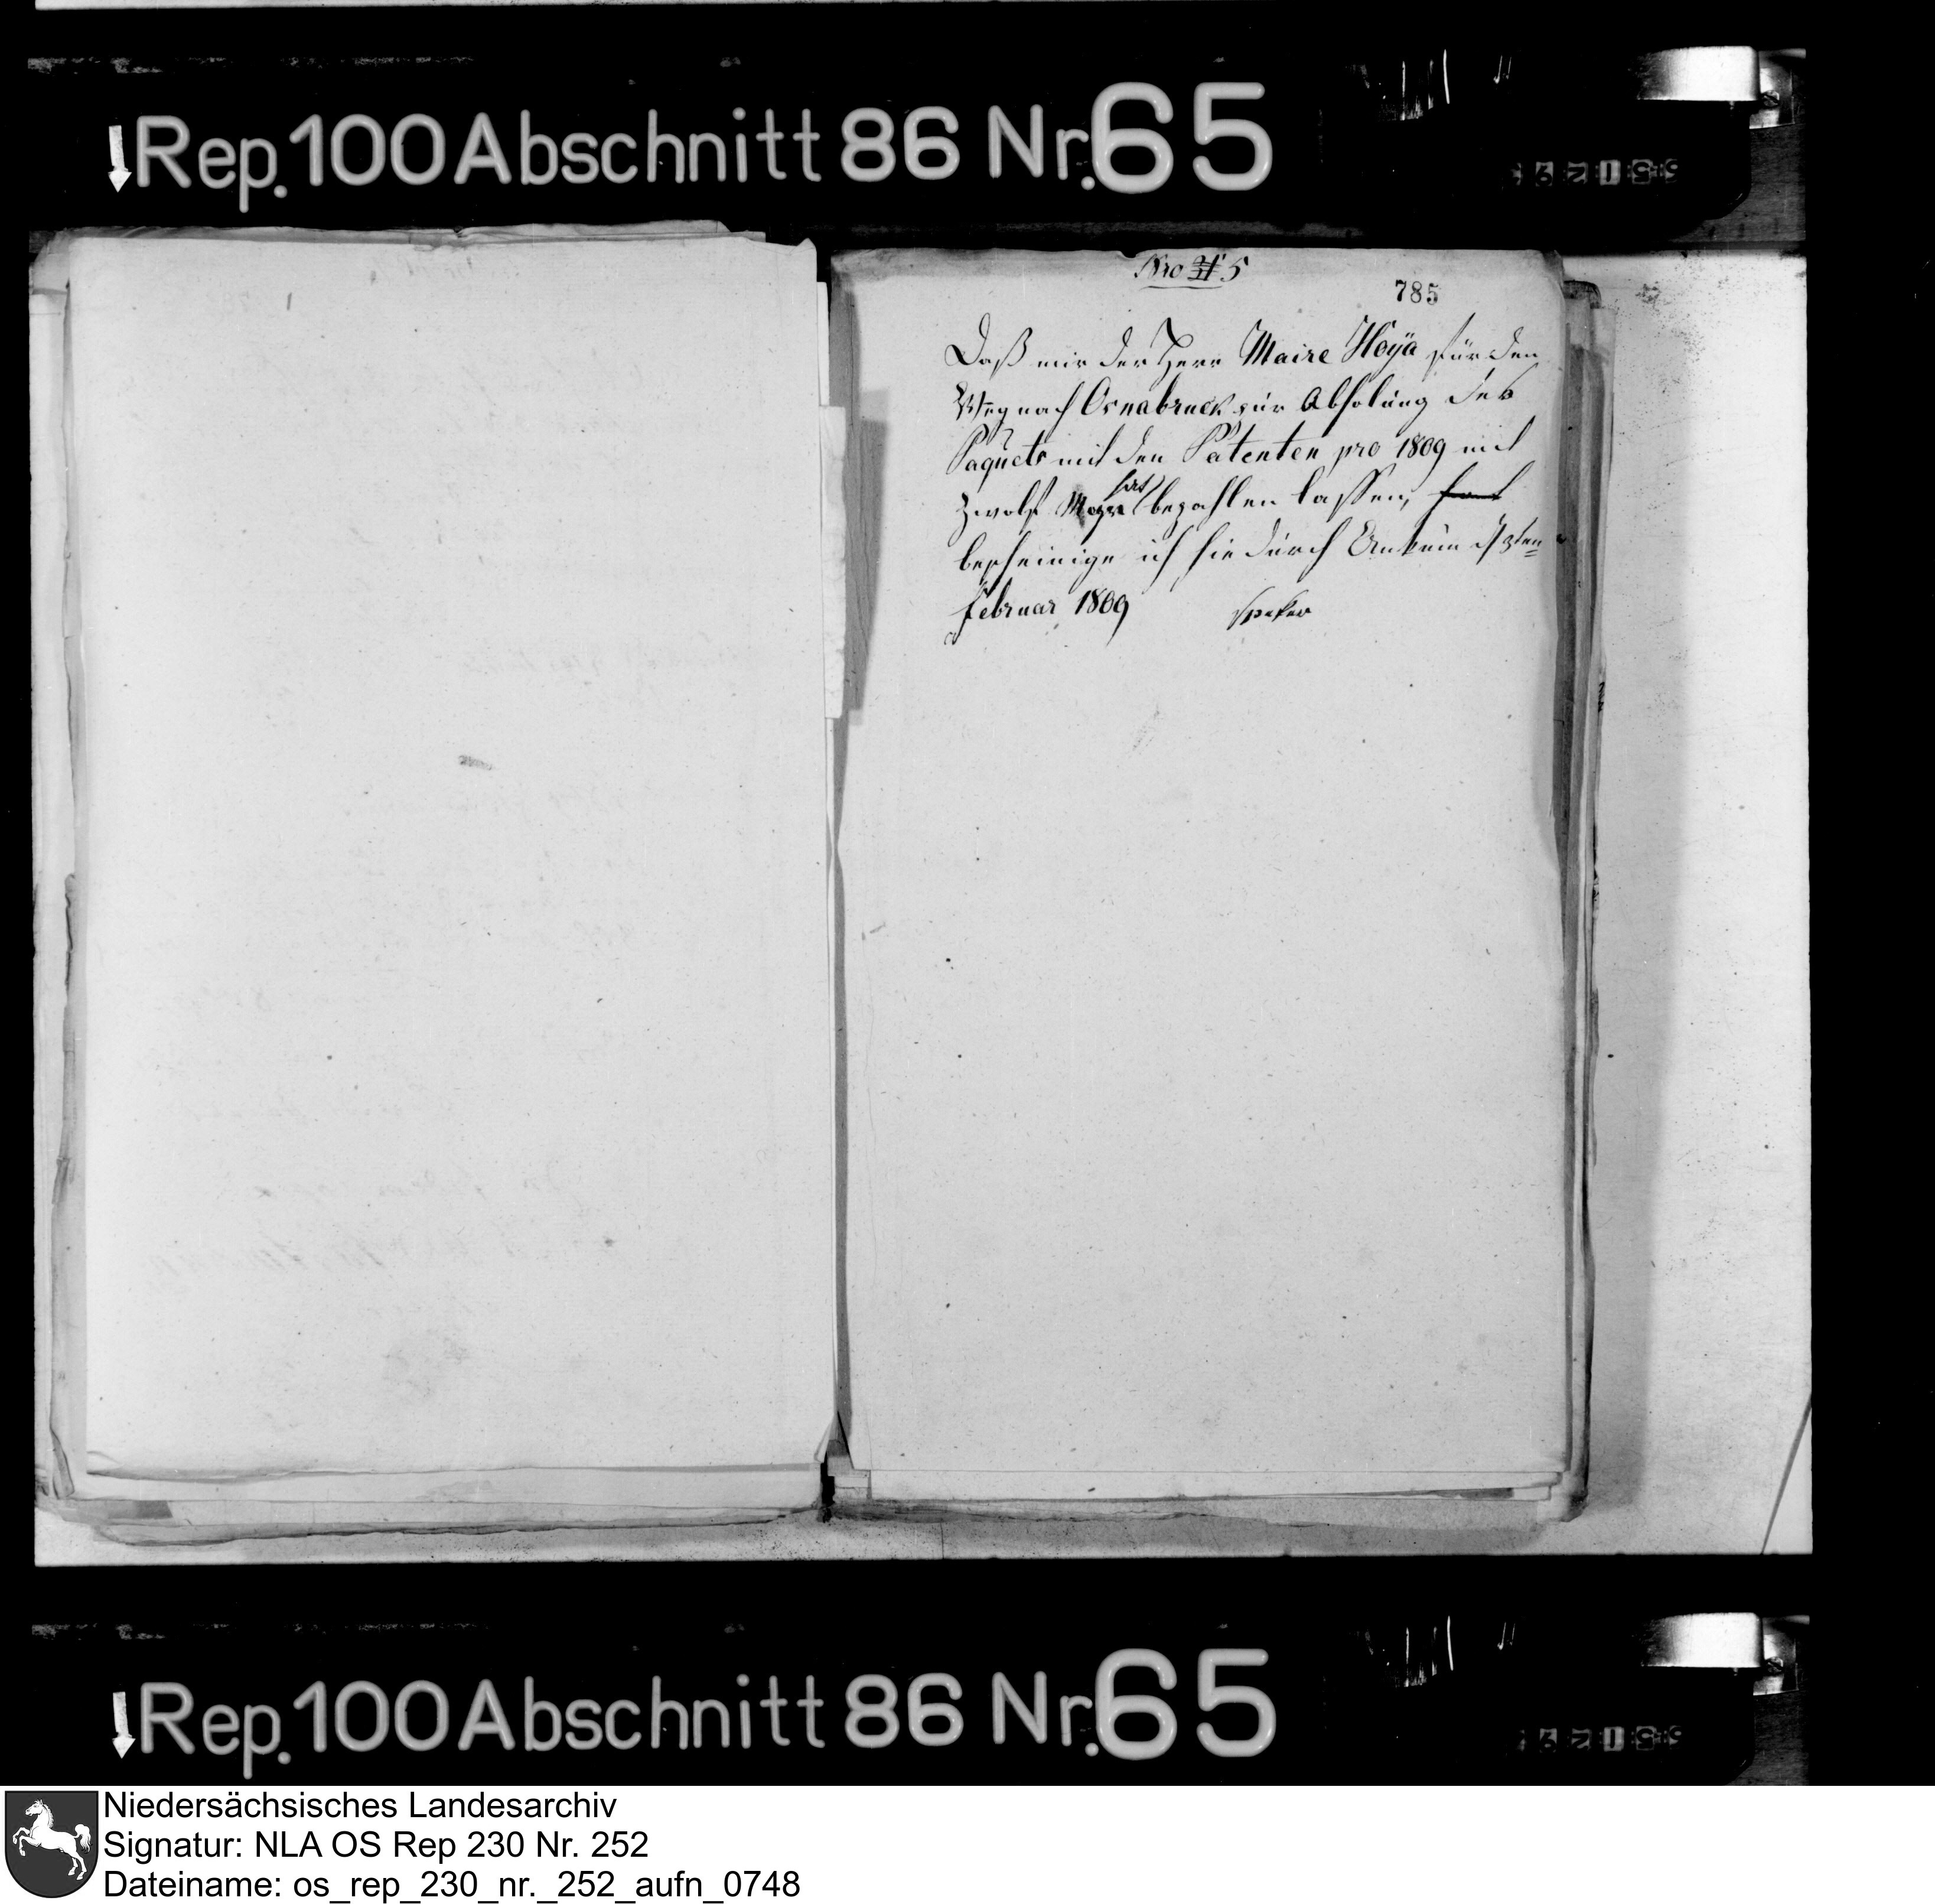 Rep. 100 Abschnitt 86 Nr. 65
Nro 5
785
Daß mir der Herr Maire Hoÿa für den
Weg nach Osnabruck zur Abholung des
Paquets mit den Patenten pro 1809 mit
zwolf bezahlen lassen,
bescheinige ich hiedurch Ankum d 3ten
februar 1809
Rep. 100 Abschnitt 86 Nr. 65
Niedersächsisches Landesarchiv
Signatur: NLA OS Rep 230 Nr. 252
Dateiname: os_rep_230_nr._252_aufn_0748